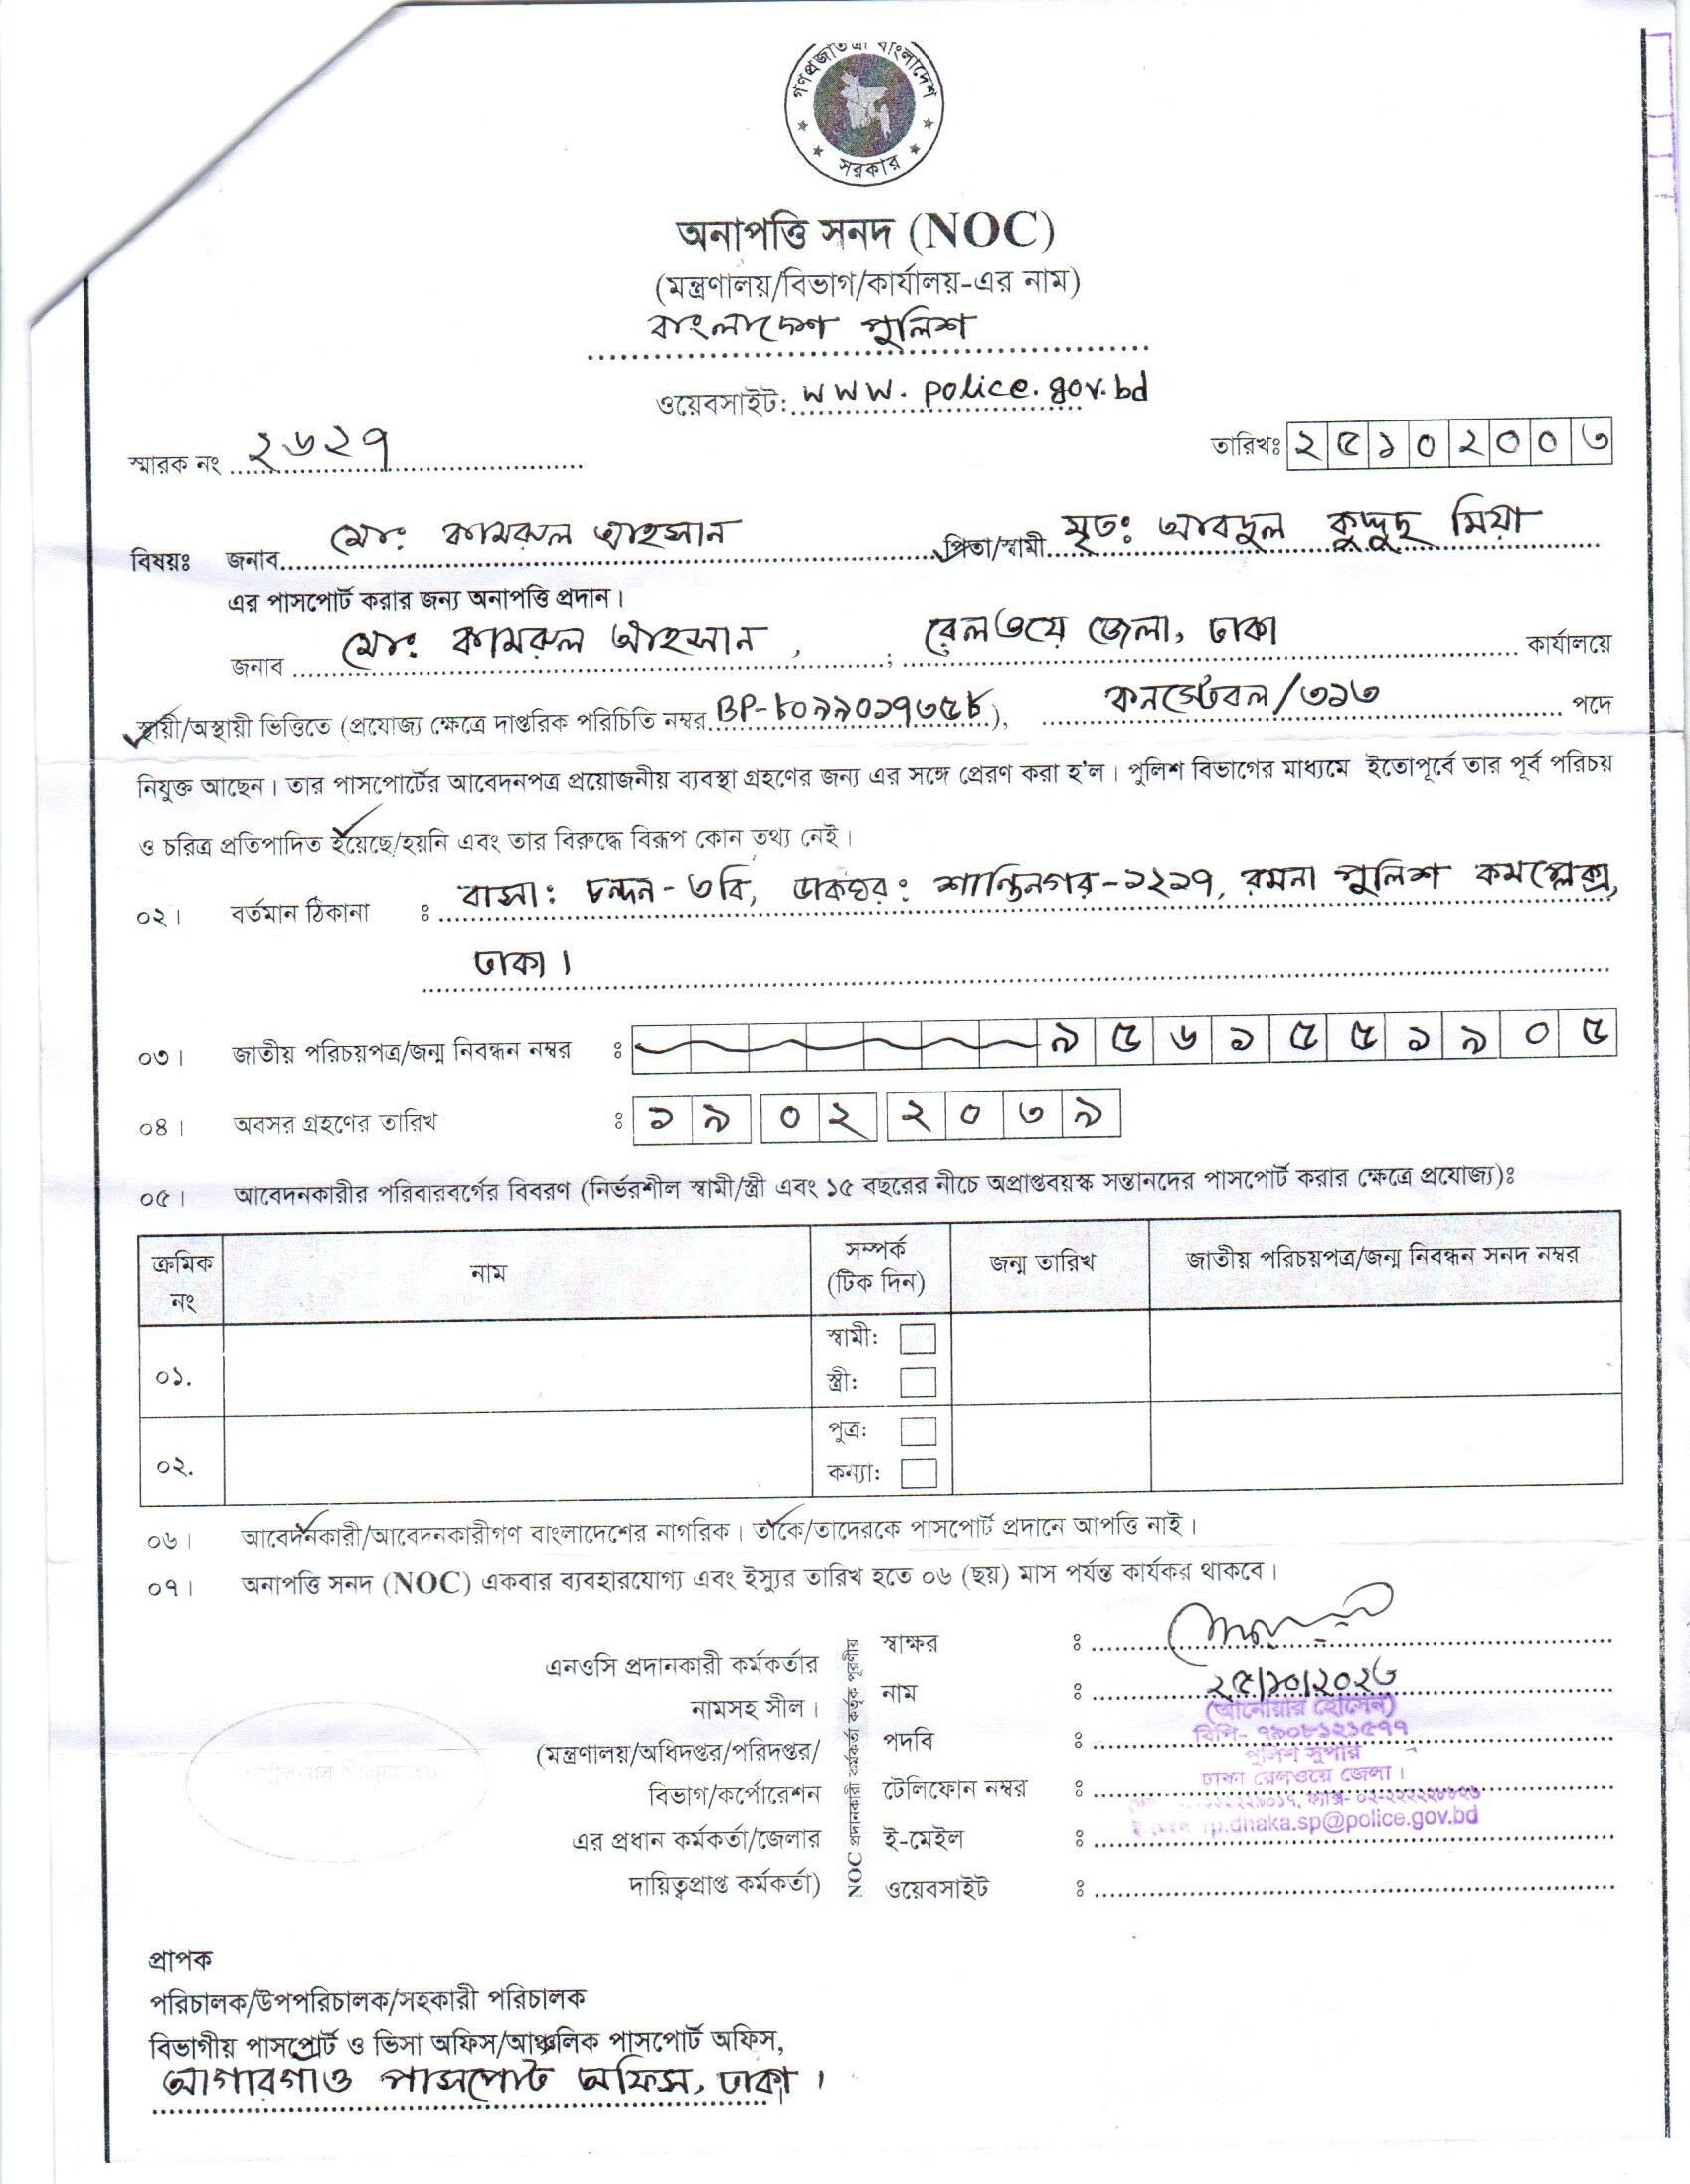 গণপ্রজাতন্ত্রী বাংলাদেশ
সরকার
অনাপত্তি সনদ (NOC)
(মন্ত্রণালয়/বিভাগ/কার্যালয়-এর নাম)
বাংলাদেশ পুলিশ
ওয়েবসাইট: www.police.gov.bd
স্মারক নং ২৬২৭
তারিখঃ ২৫১০২০০৩
বিষয়ঃ জনাব মোঃ কামরুল আহসান পিতা/স্বামী মৃতঃ আবদুল কুদ্দুছ মিয়া
এর পাসপোর্ট করার জন্য অনাপত্তি প্রদান।
জনাব মোঃ কামরুল আহসান, রেলওয়ে জেলা, ঢাকা কার্যালয়ে
স্থায়ী/অস্থায়ী ভিত্তিতে (প্রযোজ্য ক্ষেত্রে দাপ্তরিক পরিচিতি নম্বর BP-৮০৯৯০১৭৩৫৮), কনস্টেবল/৩১৩ পদে
নিযুক্ত আছেন। তার পাসপোর্টের আবেদনপত্র প্রয়োজনীয় ব্যবস্থা গ্রহণের জন্য এর সঙ্গে প্রেরণ করা হ'ল। পুলিশ বিভাগের মাধ্যমে ইতোপূর্বে তার পূর্ব পরিচয়
ও চরিত্র প্রতিপাদিত হয়েছে/হয়নি এবং তার বিরুদ্ধে বিরূপ কোন তথ্য নেই।
০২। বর্তমান ঠিকানা ঃ বাসা: চন্দন-৩বি, ডাকঘর: শান্তিনগর-১২১৭, রমনা পুলিশ কমপ্লেক্স,
ঢাকা।
০৩। জাতীয় পরিচয়পত্র/জন্ম নিবন্ধন নম্বর ঃ ৯৫৬১৫৫১৯০৫
০৪। অবসর গ্রহণের তারিখ ঃ ১৯ ০২ ২০৩৯
০৫। আবেদনকারীর পরিবারবর্গের বিবরণ (নির্ভরশীল স্বামী/স্ত্রী এবং ১৫ বছরের নীচে অপ্রাপ্তবয়স্ক সন্তানদের পাসপোর্ট করার ক্ষেত্রে প্রযোজ্য)ঃ
ক্রমিক নং নাম সম্পর্ক (টিক দিন) জন্ম তারিখ জাতীয় পরিচয়পত্র/জন্ম নিবন্ধন সনদ নম্বর
০১. স্বামী:
স্ত্রী:
০২. পুত্র:
কন্যা:
০৬। আবেদনকারী/আবেদনকারীগণ বাংলাদেশের নাগরিক। তাকে/তাদেরকে পাসপোর্ট প্রদানে আপত্তি নাই।
০৭। অনাপত্তি সনদ (NOC) একবার ব্যবহারযোগ্য এবং ইস্যুর তারিখ হতে ০৬ (ছয়) মাস পর্যন্ত কার্যকর থাকবে।
এনওসি প্রদানকারী কর্মকর্তার
নামসহ সীল।
(মন্ত্রণালয়/অধিদপ্তর/পরিদপ্তর/
বিভাগ/কর্পোরেশন
এর প্রধান কর্মকর্তা/জেলার
দায়িত্বপ্রাপ্ত কর্মকর্তা)
NOC প্রদানকারী কর্মকর্তা কর্তৃক পূরণীয়
স্বাক্ষর ঃ
নাম ঃ ২৫/১০/২০২৩
(আনোয়ার হোসেন)
বিপি- ৭৯০৮১২১৫৭৭
পদবি ঃ পুলিশ সুপার
ঢাকা রেলওয়ে জেলা।
টেলিফোন নম্বর ঃ
ই-মেইল ঃ rp.dhaka.sp@police.gov.bd
ওয়েবসাইট ঃ
প্রাপক
পরিচালক/উপপরিচালক/সহকারী পরিচালক
বিভাগীয় পাসপোর্ট ও ভিসা অফিস/আঞ্চলিক পাসপোর্ট অফিস,
আগারগাও পাসপোর্ট অফিস, ঢাকা।